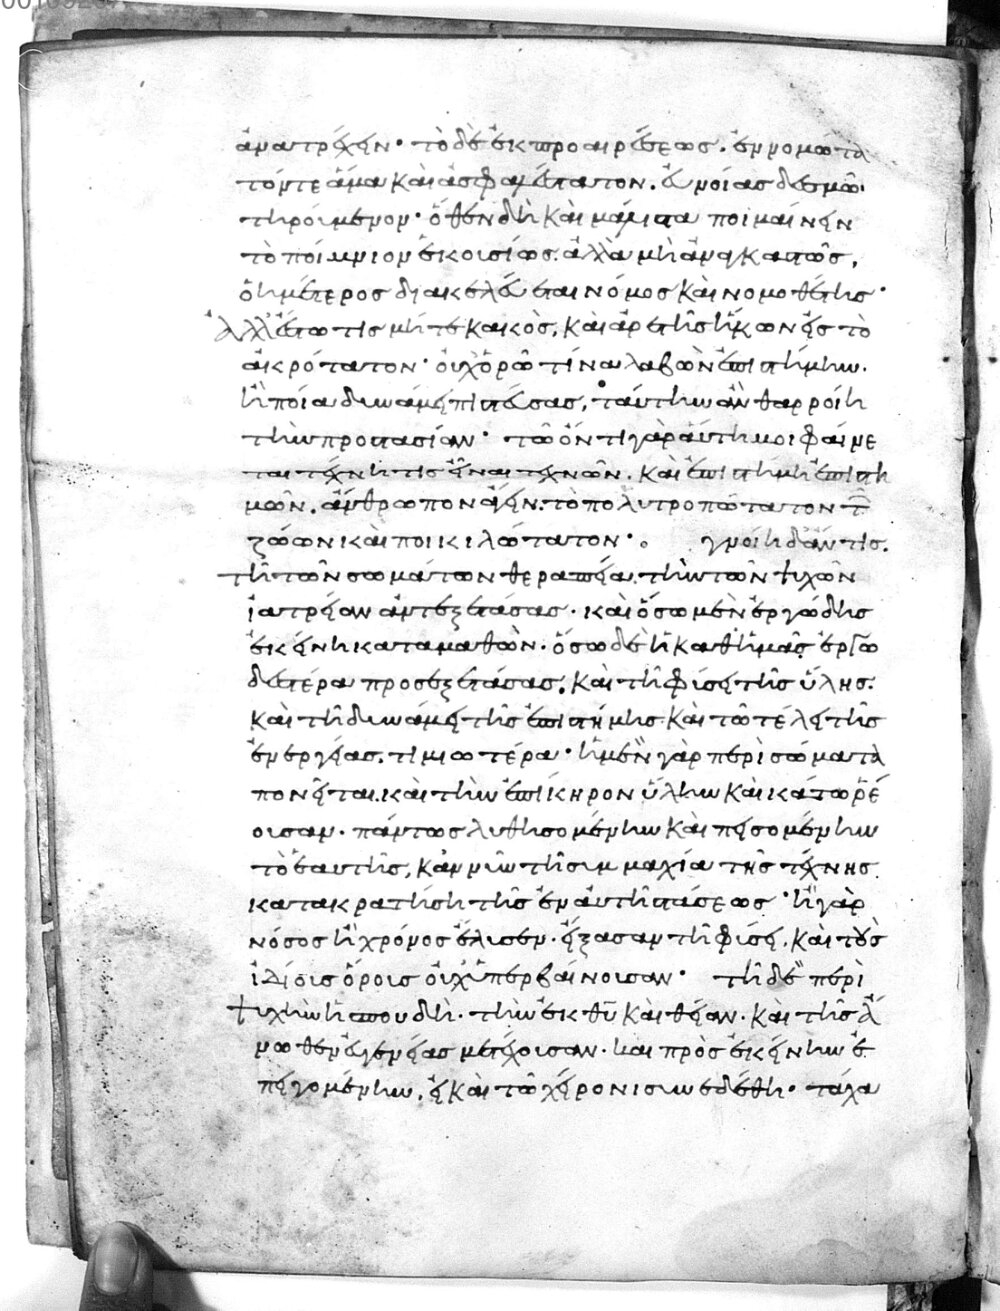 ἀνατρέχειν· τὸ δὲ ἐκ προαιρέσεως. ἐννομώτα
τόν τε ἅμα καὶ ἀσφαλέστατον. εὐνοίας δεσμῶ·
τηρούμενον· ὅθεν δὴ καὶ μάλιστα ποιμαίνειν
τὸ ποίμνιον ἑκουσίως. ἀλλὰ μὴ ἀναγκαστῶς,
ὁ ἡμέτερος διακελεύεται νόμος καὶ νομοθέτης·
Ἀλλ' ἔστω τις μήτε κακὸς, καὶ ἀρετῆς ἥκων εἰς τὸ
ἀκρότατον· οὐχ ὁρῶ τίνα λαβὼν ἐπιστήμην.
ἢ ποία δυνάμει πιστεύσας, ταύτην ἂν θαρροίη
τὴν προστασίαν· τῶ ὄντι γὰρ αὕτη μοι φαίνε
ται τέχνη τις εἶναι τεχνῶν. καὶ ἐπιστήμη ἐπιστη
μῶν. ἄνθρωπον ἄγειν. τὸ πολυτροπώτατον τῶν
ζώων καὶ ποικιλώτατον· γνοίη δ' ἄν τις.
τῆ τῶν σωμάτων θεραπεία. τὴν τῶν ψυχῶν
ἰατρείαν ἀντεξετάσας· καὶ ὅσω μὲν ἐργώδης
ἐκείνη καταμαθὼν· ὅσω δὲ ἡ καθ' ἡμᾶς ἐργω
δεστέρα προσεξετάσας. καὶ τῆ φύσει τῆς ὕλης.
καὶ τῆ δυνάμει τῆς ἐπιστήμης καὶ τῶ τέλει τῆς
ἐνεργείας. τιμιωτέρα· ἡ μὲν γὰρ περὶ σώματα
πονεῖται. καὶ τὴν ἐπίκηρον ὕλην καὶ κάτω ῥέ
ουσαν· πάντως λυθησομένην καὶ πεισομένην
τὸ ἑαυτῆς, κἂν νῦν τῆ συμμαχία τῆς τέχνης
κατακρατήση τῆς ἐν αὐτῆ στάσεως· ἢ γὰρ
νόσος ἢ χρόνος ἔλυσεν· εἴξασαν τῆ φύσει, καὶ τοὺς
ἰδίους ὅρους οὐχ ὑπερβαίνουσαν· τῆ δὲ περὶ
ψυχὴν ἡ σπουδὴ· τὴν ἐκ θῦ καὶ θείαν· καὶ τῆς ἄ
νωθεν εὐγενείας μετέχουσαν· καὶ πρὸς ἐκείνην ἐ
πειγομένην, εἰ καὶ τῶ χείρονι συνεδέθη· τάχα